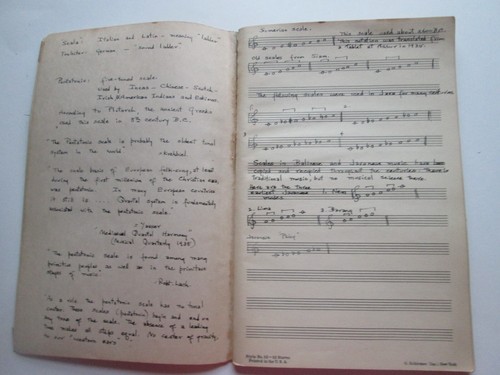 Scale: Italian and Latin - meaning "ladder"
German - "sound ladder"
Pentatonic: five-toned scale.
Used by Incas - Chinese - Scotch -
Irish American Indians and Eskimos.
According to Plutarch, the ancient Greeks
used this scale in 8th century B.C.
"The Pentatonic scale is probably the oldest tonal
system in the world."
"The scale basis of European folk-song, at least
during the first millennium of the Christian era,
was pentatonic. In many European countries
it still is .... Quartal system is fundamentally
associated with the pentatonic scale."
"Yasser"
Mediaeval Quartal Harmony"
(Musical Quarterly 1938)
"The pentatonic scale is found among many
primitive peoples, as well as in the primitive
stages of music"
"As a rule the pentatonic scale has no tonal
center. These scales (pentatonic) begin and end on
any tone of the scale. The absence of a leading
tone makes all steps equal. No center of gravity
in our "western ears".
Sumerian Scale:
This scale used about 2800 B.C.
This notation was translated from
a Tablet at Ashur in 1925.
Old scales from Siam
The following scales were used in Java for many centuries
Scales in Balinese and Javanese music have been
copied and changed throughout the centuries. There is
traditional music, but no musical release there.
Here are the three
earliest Javanese
modes
1. Nem
2. Lima
3. Barang
Javanese "Pelog"
Printed in the U.S.A.
G. Schirmer, Inc., New York